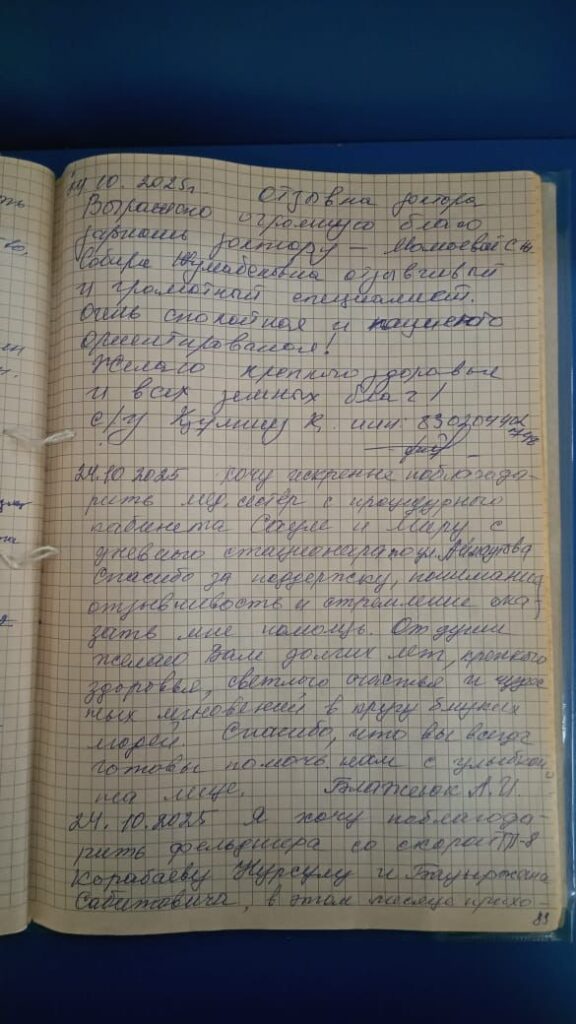 24.10.2025г отзыв на доктора
Выражаю огромную благо
дарность доктору —
Сабира Жумабековна отзывчивый
и грамотный специалист.
Очень спокойная и пациенто
ориентированая!
Желаю крепкого здоровья
и всех земных благ!
с/у К. иин: 8302044
24.10 2025 Хочу искренне поблагода-
рить мед. сестёр с процедурного
кабинета Сауле и Миру с
дневного стационара
Спасибо за поддержку, понимание,
отзывчивость и стремление ока-
зать мне помощь. От души
желаю Вам долгих лет, крепкого
здоровья, светлого счастья и чудес
ных мгновений в кругу близких
людей. Спасибо, что вы всегда
готовы помочь нам с улыбкой
на лице. Блажеюк А.И.
24.10.2025 Я хочу поблагода-
рить фельдшера со скорой ГП-8
Корабаеву Нурсулу и Бауыржана
Сабитовича, в этом месяце прихо-
83